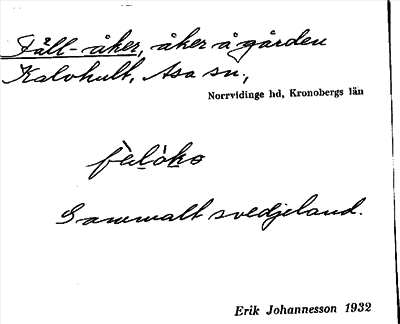 Fäll-åker, åker å gården
Kalvhult, Asa sn,
Norrvidinge hd, Kronobergs län
fὲlòkə
Gammalt svedjeland.
Erik Johannesson 1932